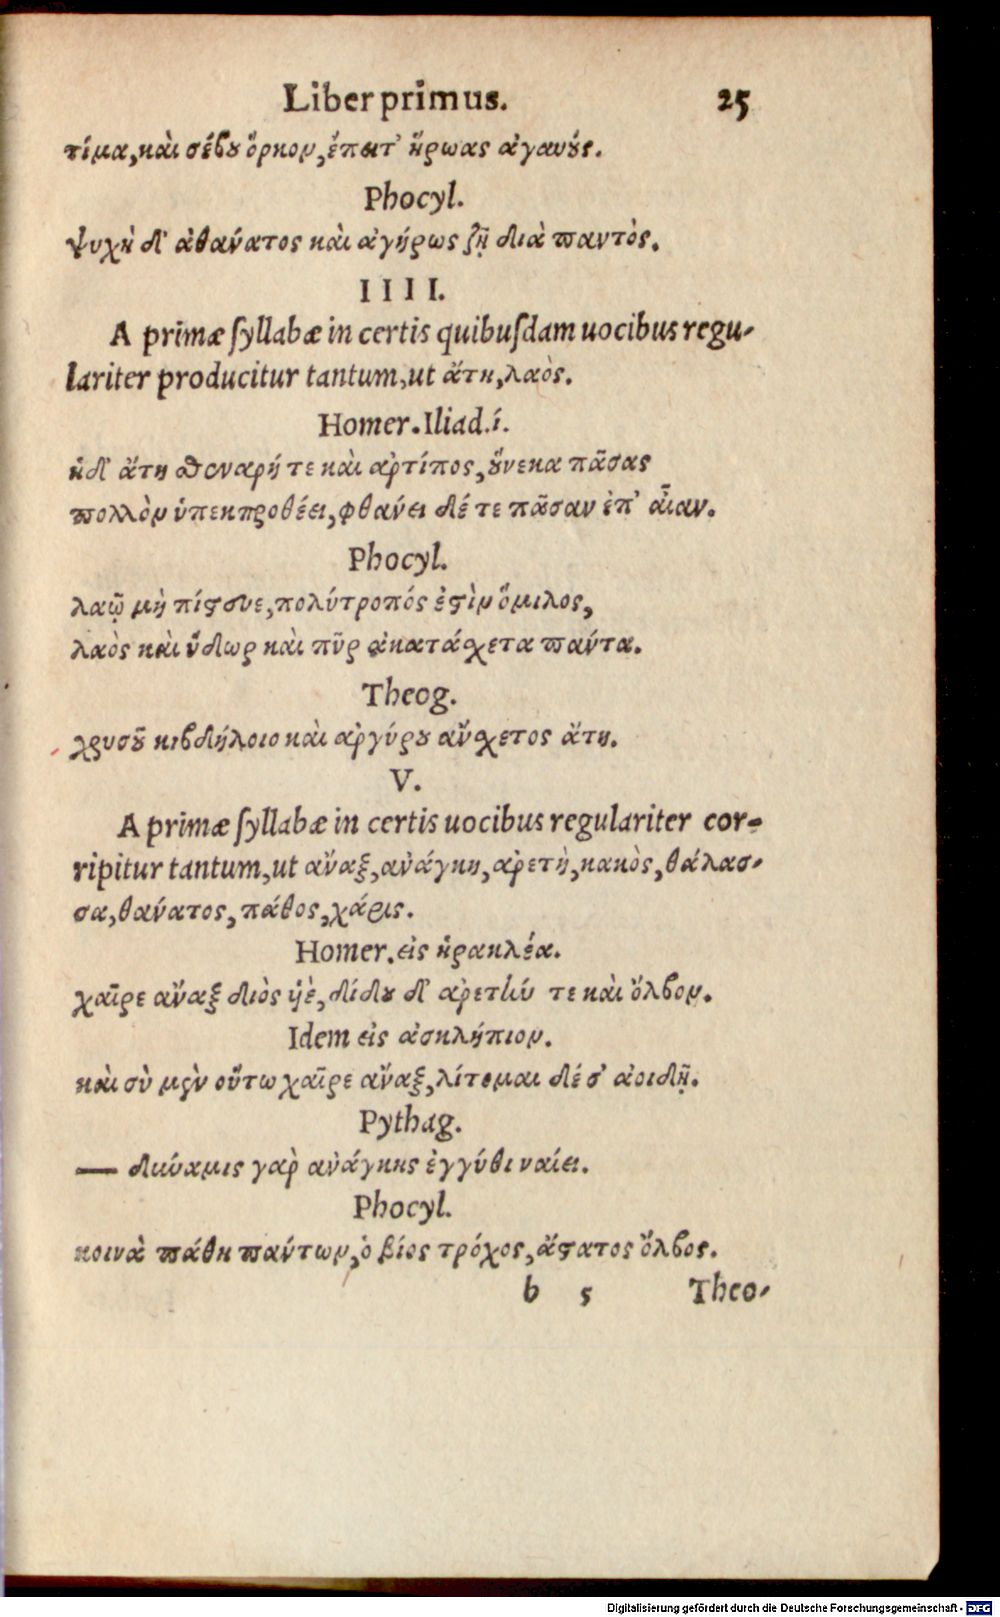 Liber primus. 25
τίμα, καὶ σέβου ὅρκον, ἔπειτ' ἥρωας ἀγαυούς.
Phocyl.
ψυχὴ δ' ἀθάνατος καὶ ἀγήρως ζῇ διὰ παντὸς.
IIII.
A primæ ſyllabæ in certis quibuſdam uocibus regu-
lariter producitur tantum, ut ἄτη, λαὸς.
Homer. Iliad. ί.
ἡ δ' ἄτη σθεναρή τε καὶ ἀρτίπος, οὕνεκα πᾶσας
πολλὸν ὑπεκπροθέει, φθάνει δέ τε πᾶσαν ἐπ' αἶαν.
Phocyl.
λαῷ μὴ πίστευε, πολύτροπός ἐστὶν ὅμιλος,
λαὸς καὶ ὕδωρ καὶ πῦρ ἀκατάσχετα πάντα.
Theog.
χρυσοῦ κιβδήλοιο καὶ ἀργύρου ἄνσχετος ἄτη.
V.
A primæ ſyllabæ in certis uocibus regulariter cor-
ripitur tantum, ut ἄναξ, ἀνάγκη, ἀρετὴ, κακὸς, θάλασ-
σα, θάνατος, πάθος, χάρις.
Homer. εἰς ἡρακλέα.
χαῖρε ἄναξ διὸς ὑιὲ, δίδου δ' ἀρετήν τε καὶ ὄλβον.
Idem εἰς ἀσκλήπιον.
καὶ σὺ μὲν οὕτω χαῖρε ἄναξ, λίτομαι δέ σ' ἀοιδῇ.
Pythag.
— δύναμις γὰρ ἀνάγκης ἐγγύθι ναίει.
Phocyl.
κοινὰ πάθη πάντων, ὁ βίος τρόχος, ἄστατος ὄλβος.
b 5 Theo-
Digitalisierung gefördert durch die Deutsche Forschungsgemeinschaft - DFG